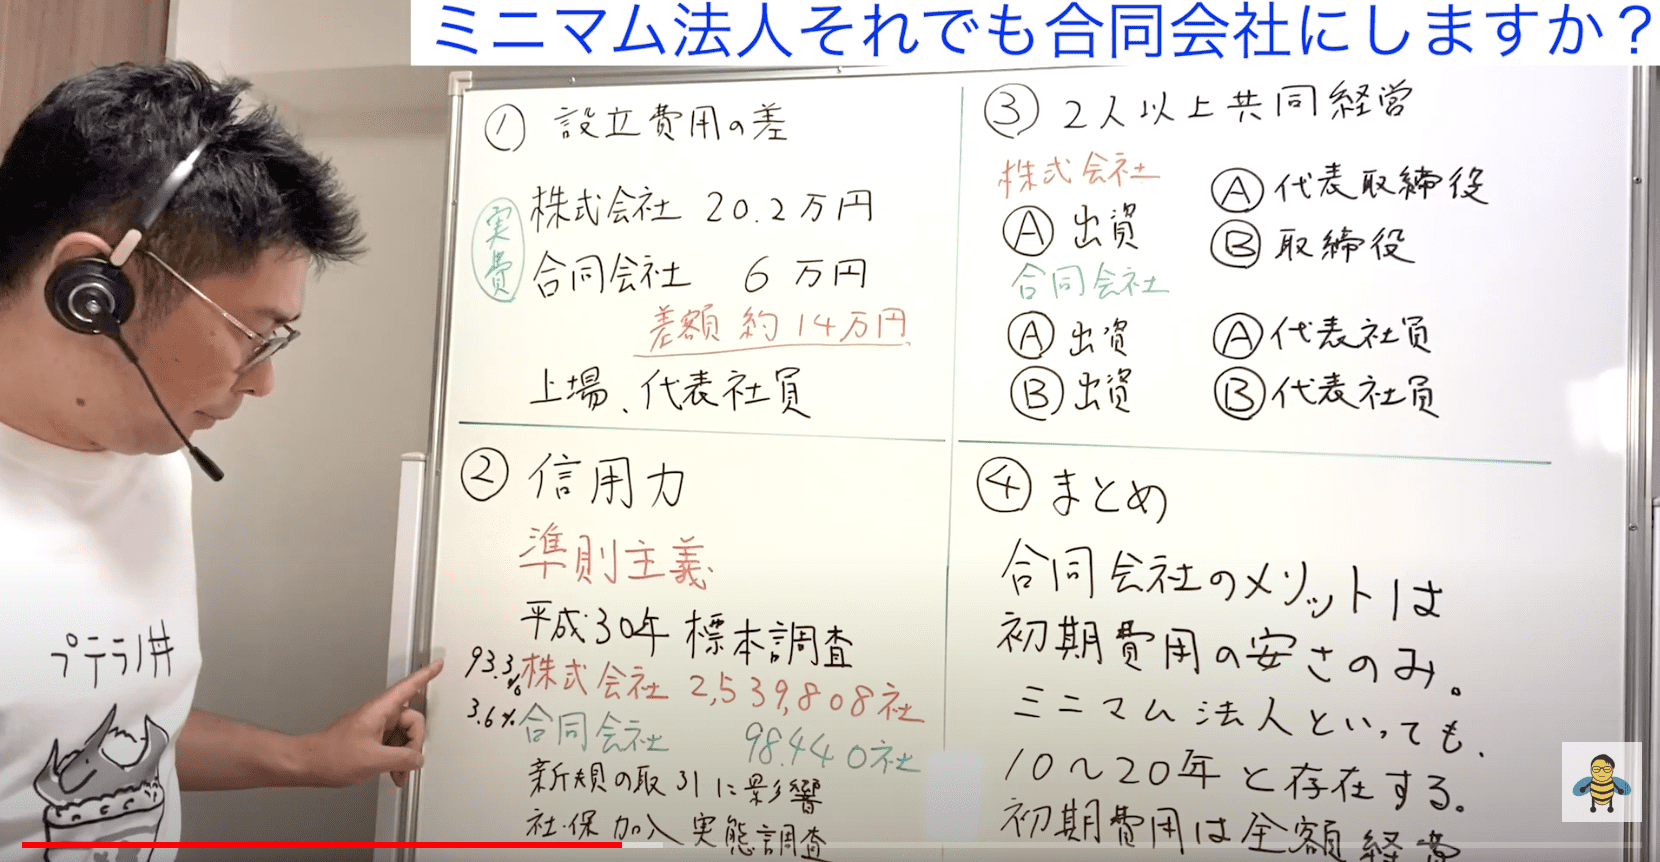 ミニマム法人それでも合同会社にしますか?
① 設立費用の差
実費
株式会社 20.2万円
合同会社 6万円
差額 約14万円
上場、代表社員
② 信用力
準則主義
平成30年 標本調査
93.3% 株式会社 2,539,808社
3.6% 合同会社 98.440社
新規の取引に影響
社保加入 実態調査
③ 2人以上共同経営
株式会社
Ⓐ 出資 Ⓐ 代表取締役
Ⓑ 取締役
合同会社
Ⓐ 出資 Ⓐ 代表社員
Ⓑ 出資 Ⓑ 代表社員
④ まとめ
合同会社のメリットは
初期費用の安さのみ。
ミニマム法人といっても、
10〜20年と存在する。
初期費用は全額経費
プテラノ井